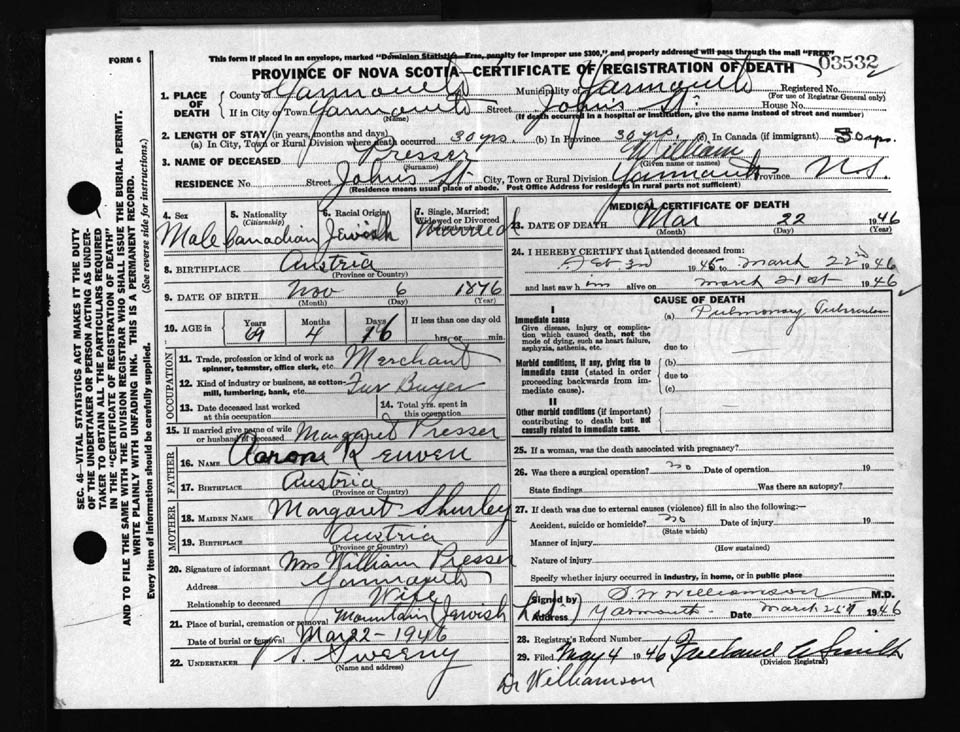 FORM 6
This form if placed in an envelope, marked "Dominion Statistics—Free, penalty for improper use $300," and properly addressed will pass through the mail "FREE"
PROVINCE OF NOVA SCOTIA—CERTIFICATE OF REGISTRATION OF DEATH
03532
1. PLACE OF DEATH
County of Yarmouth Municipality of Yarmouth Registered No.
(For use of Registrar General only)
If in City or Town Yarmouth Street John's St. House No.
(Name) (If death occurred in a hospital or institution, give the name instead of street and number)
2. LENGTH OF STAY (in years, months and days)
(a) In City, Town or Rural Division where death occurred 30 yrs. (b) In Province 30 yrs. (c) In Canada (if immigrant) 50 yrs.
3. NAME OF DECEASED Presser William
(Surname) (Given name or names)
RESIDENCE No. Street John's St. City, Town or Rural Division Yarmouth Province N.S.
(Residence means usual place of abode. Post Office Address for residents in rural parts not sufficient)
4. Sex Male
5. Nationality (Citizenship) Canadian
6. Racial Origin Jewish
7. Single, Married, Widowed or Divorced Married
8. BIRTHPLACE Austria
(Province or Country)
9. DATE OF BIRTH Nov 6 1876
(Month) (Day) (Year)
10. AGE in Years 69 Months 4 Days 16 If less than one day old
hrs. or min.
OCCUPATION
11. Trade, profession or kind of work as spinner, teamster, office clerk, etc. Merchant
12. Kind of industry or business, as cotton-mill, lumbering, bank, etc. Fur Buyer
13. Date deceased last worked at this occupation
14. Total yrs. spent in this occupation
15. If married give name of wife or husband of deceased Margaret Presser
FATHER
16. NAME Aaron Reuven
17. BIRTHPLACE Austria
(Province or Country)
MOTHER
18. MAIDEN NAME Margaret Shurley
19. BIRTHPLACE Austria
(Province or Country)
20. Signature of informant Mrs William Presser
Address Yarmouth
Relationship to deceased Wife
21. Place of burial, cremation or removal Mountain Jewish
Date of burial or removal Mar 22 - 1946
22. UNDERTAKER Sweeny
(Name and address)
MEDICAL CERTIFICATE OF DEATH
23. DATE OF DEATH Mar 22 1946
(Month) (Day) (Year)
24. I HEREBY CERTIFY that I attended deceased from:
1945 to March 22nd 1946
and last saw him alive on March 21st 1946
CAUSE OF DEATH
I
Immediate cause
Give disease, injury or complication which caused death, not the mode of dying, such as heart failure, asphyxia, asthenia, etc.
(a) Pulmonary Tuberculosis
due to
Morbid conditions, if any, giving rise to immediate cause (stated in order proceeding backwards from immediate cause).
(b)
due to
(c)
II
Other morbid conditions (if important) contributing to death but not causally related to immediate cause.
25. If a woman, was the death associated with pregnancy?
26. Was there a surgical operation? no Date of operation 19
State findings Was there an autopsy?
27. If death was due to external causes (violence) fill in also the following:—
Accident, suicide or homicide? no Date of injury 19
(State which)
Manner of injury
(How sustained)
Nature of injury
Specify whether injury occurred in industry, in home, or in public place
Signed by S. W. Williamson M.D.
Address Yarmouth Date March 25th 1946
28. Registrar's Record Number
29. Filed May 4 1946 Smith
(Division Registrar)
Dr Williamson
SEC. 46—VITAL STATISTICS ACT MAKES IT THE DUTY
OF THE UNDERTAKER OR PERSON ACTING AS UNDER-
TAKER TO OBTAIN ALL THE PARTICULARS REQUIRED
IN THE "CERTIFICATE OF REGISTRATION OF DEATH"
AND TO FILE THE SAME WITH THE DIVISION REGISTRAR WHO SHALL ISSUE THE BURIAL PERMIT.
WRITE PLAINLY WITH UNFADING INK. THIS IS A PERMANENT RECORD.
Every item of information should be carefully supplied. (See reverse side for instructions.)